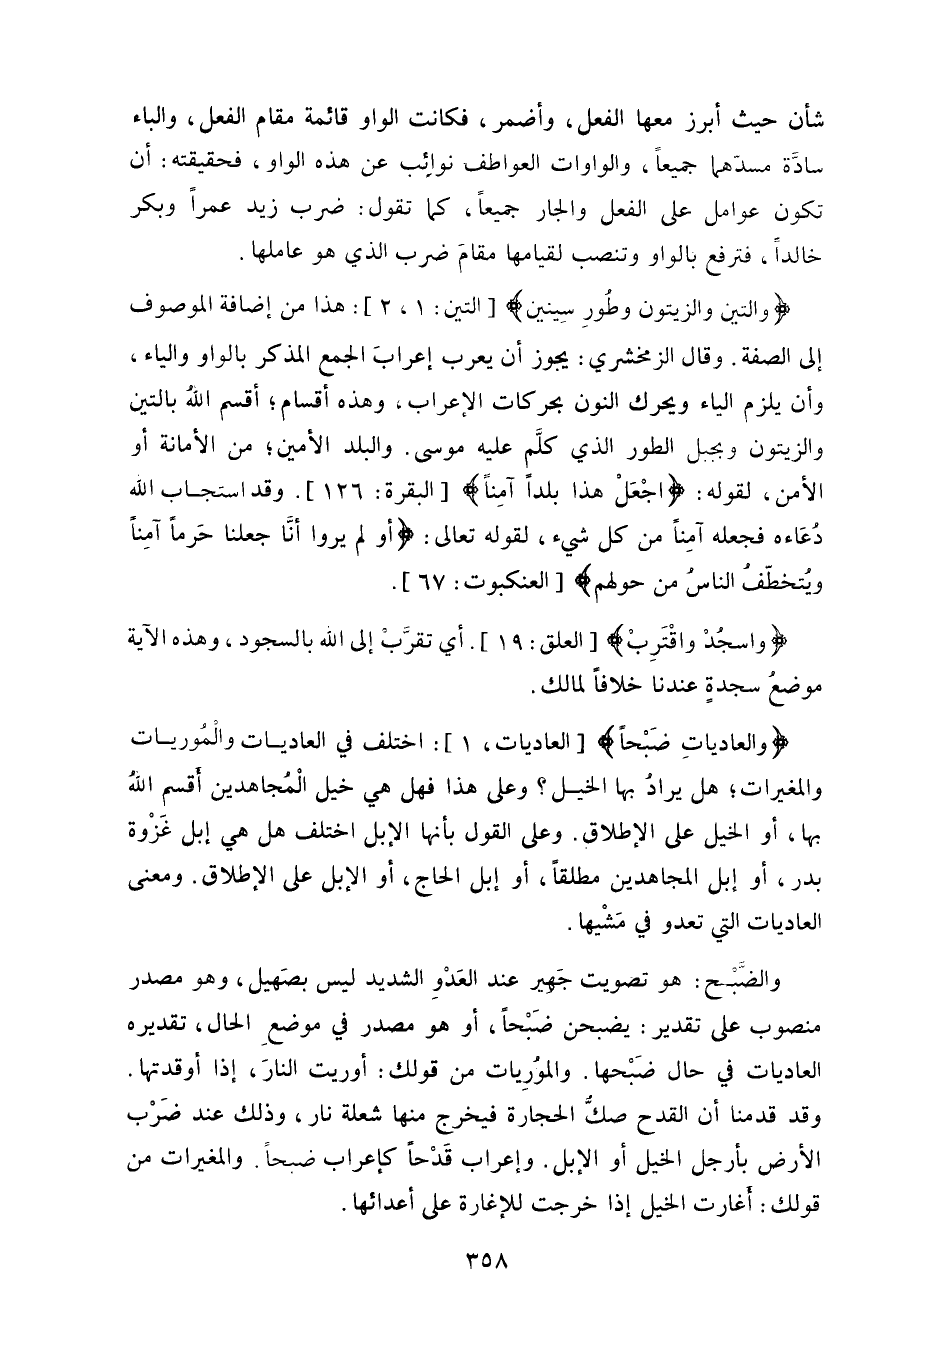 شأن حيث أبرز معها الفعل، وأضمر، فكانت الواو قائمة مقام الفعل، والباء
سادَّة مسدّهما جميعاً، والواوات العواطف نوائب عن هذه الواو، فحقيقته: أن
تكون عوامل على الفعل والجار جميعاً، كما تقول: ضرب زيد عمراً وبكر
خالداً، فترفع بالواو وتنصب لقيامها مقامَ ضرب الذي هو عاملها.
﴿والتين والزيتون وطُورِ سِينين﴾ [التين: ١، ٢]: هذا من إضافة الموصوف
إلى الصفة. وقال الزمخشري: يجوز أن يعرب إعرابَ الجمع المذكر بالواو والياء،
وأن يلزم الياء ويحرك النون بحركات الإعراب، وهذه أقسام؛ أقسم اللهُ بالتين
والزيتون وبجبل الطور الذي كلَّم عليه موسى. والبلد الأمين؛ من الأمانة أو
الأمن، لقوله: ﴿اجْعَلْ هذا بلداً آمِناً﴾ [البقرة: ١٢٦]. وقد استجاب الله
دُعَاءه فجعله آمِناً من كل شيء، لقوله تعالى: ﴿أو لم يروا أنَّا جعلنا حَرماً آمِناً
ويُتخطّفُ الناسُ من حولهم﴾ [العنكبوت: ٦٧].
﴿واسجُدْ واقْتَرِبْ﴾ [العلق: ١٩]. أي تقرَّبْ إلى الله بالسجود، وهذه الآية
موضعُ سجدةٍ عندنا خلافاً لمالك.
﴿والعادياتِ ضَبْحاً﴾ [العاديات، ١]: اختلف في العاديات والْمُوريات
والمغيرات؛ هل يرادُ بها الخيل؟ وعلى هذا فهل هي خيل الْمُجاهدين أَقسم اللهُ
بها، أو الخيل على الإطلاق. وعلى القول بأنها الإبل اختلف هل هي إبل غَزْوة
بدر، أو إبل المجاهدين مطلقاً، أو إبل الحاج، أو الإبل على الإطلاق. ومعنى
العاديات التي تعدو في مَشْيها.
والضَّبْح: هو تصويت جَهِير عند العَدْوِ الشديد ليس بصَهيل، وهو مصدر
منصوب على تقدير: يضبحن ضَبْحاً، أو هو مصدر في موضعِ الحال، تقديره
العاديات في حال ضَبْحها. والموُرِيات من قولك: أوريت النارَ، إذا أوقدتها.
وقد قدمنا أن القدح صكُّ الحجارة فيخرج منها شعلة نار، وذلك عند ضَرْب
الأرض بأرجل الخيل أو الإبل. وإعراب قَدْحاً كإعراب ضبحاً. والمغيرات من
قولك: أَغارت الخيل إذا خرجت للإغارة على أعدائها.
٣٥٨